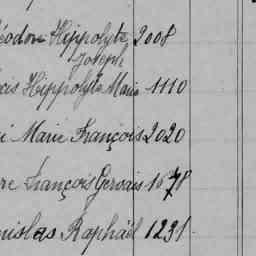 éodore Hippolyte 2008
Joseph
cis Hippolyte Marie 1110
i Marie François 2020
re François Gervais 1678
nislas Raphaël 1231